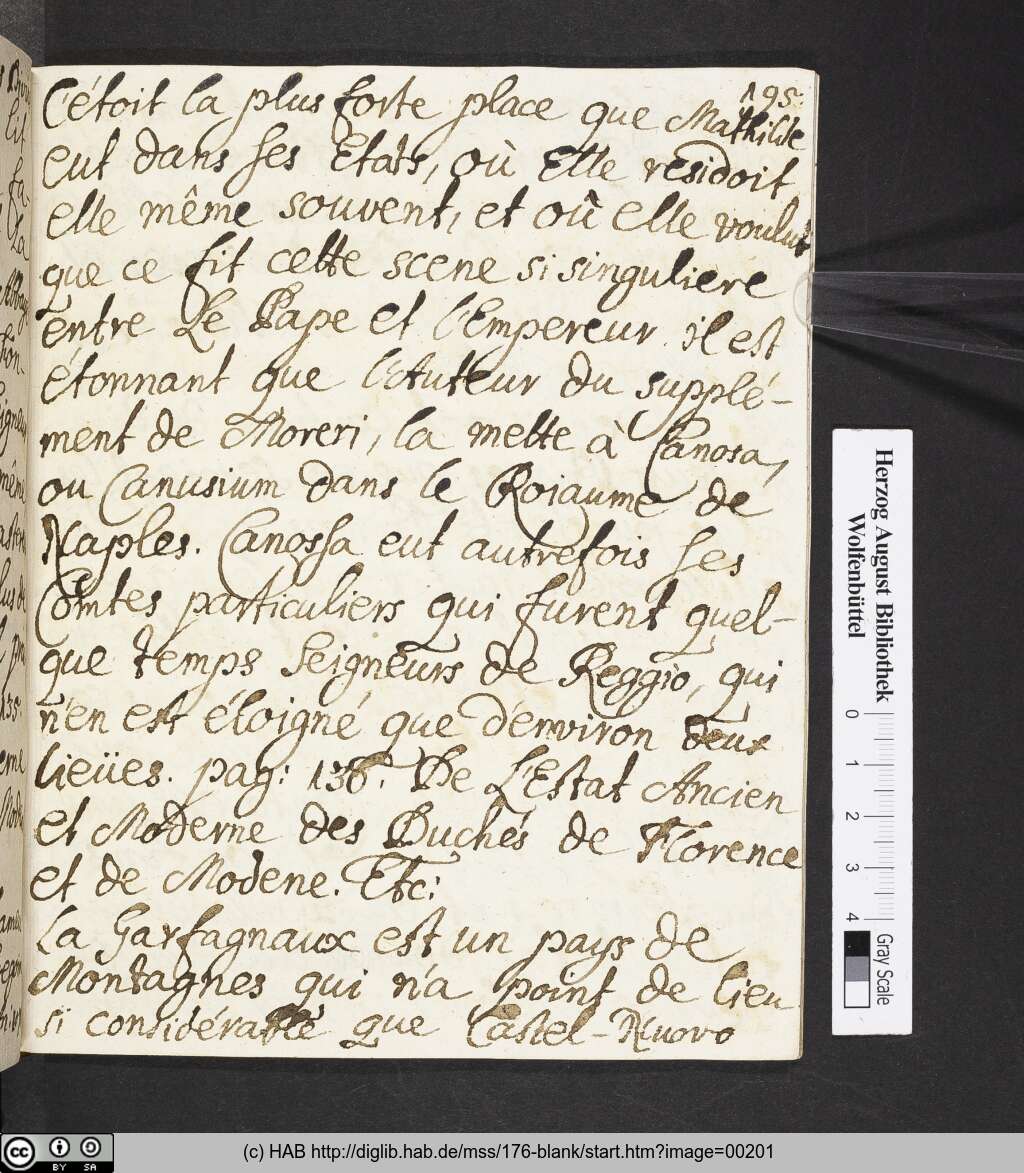 195.
C'étoit la plus forte place que Mathilde
eut dans ses Etats, où Elle residoit
elle même souvent, et où elle voulut
que ce fit cette scene si singuliere
entre Le Pape et l'Empereur. il est
étonnant que l'Auteur du supplé-
ment de Moreri, la mette à Canosa,
ou Canusium dans le Roiaume de
Naples. Canossa eut autrefois ses
Comtes particuliers qui furent quel-
que temps Seigneurs de Reggio, qui
n'en est éloigné que d'environ deux
lieües. pag: 136. De L'Estat Ancien
et Moderne des Duchés de Florence
et de Modene. Etc:
La Garfagnaux est un pays de
Montagnes qui n'a point de lieu
si considérable que Castel-Nuovo
Herzog August Bibliothek
Wolfenbüttel
0 1 2 3 4
Gray Scale
cc BY SA
(c) HAB http://diglib.hab.de/mss/176-blank/start.htm?image=00201